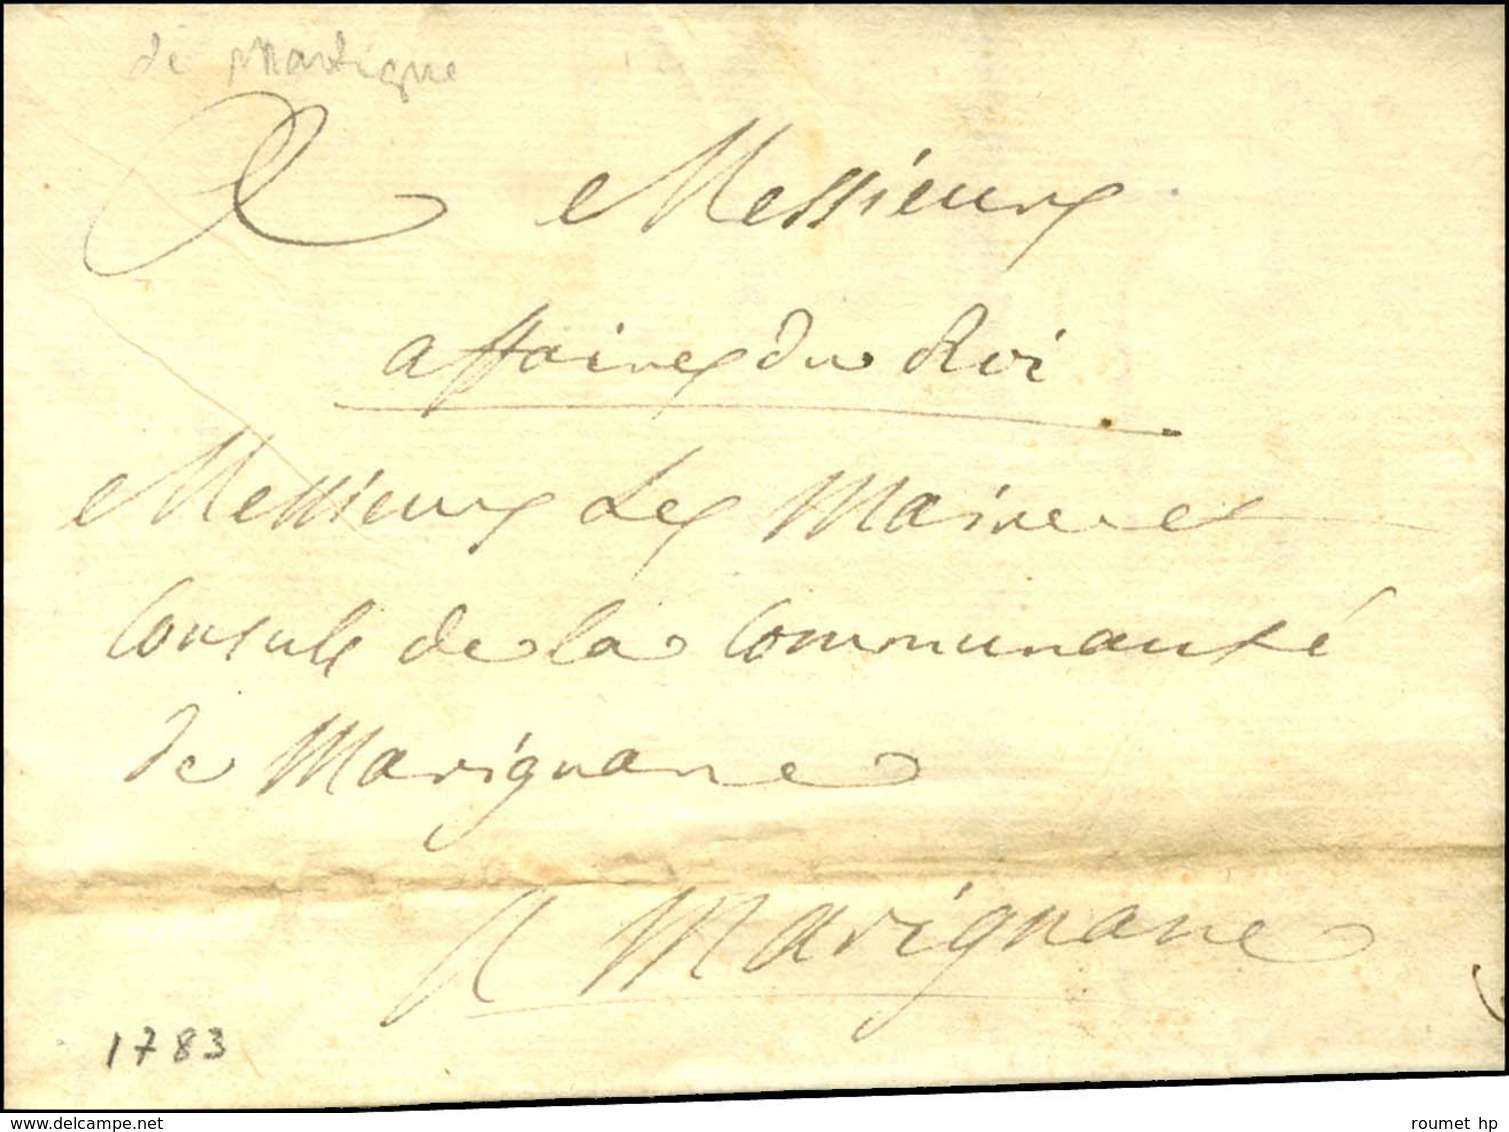 de Martigue
A Messieurs
affaires du Roi
Messieurs Les Maire et
Consuls de la Communauté
de Marignane
A Marignane
1783
www.delcampe.net
roumet hp